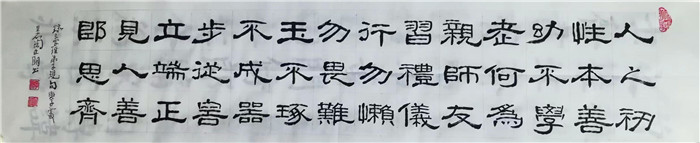 人之初
性本善
幼不學
老何為
親師友
習禮儀
行勿懶
勿畏難
玉不琢
不成器
步從容
立端正
見人善
即思齊